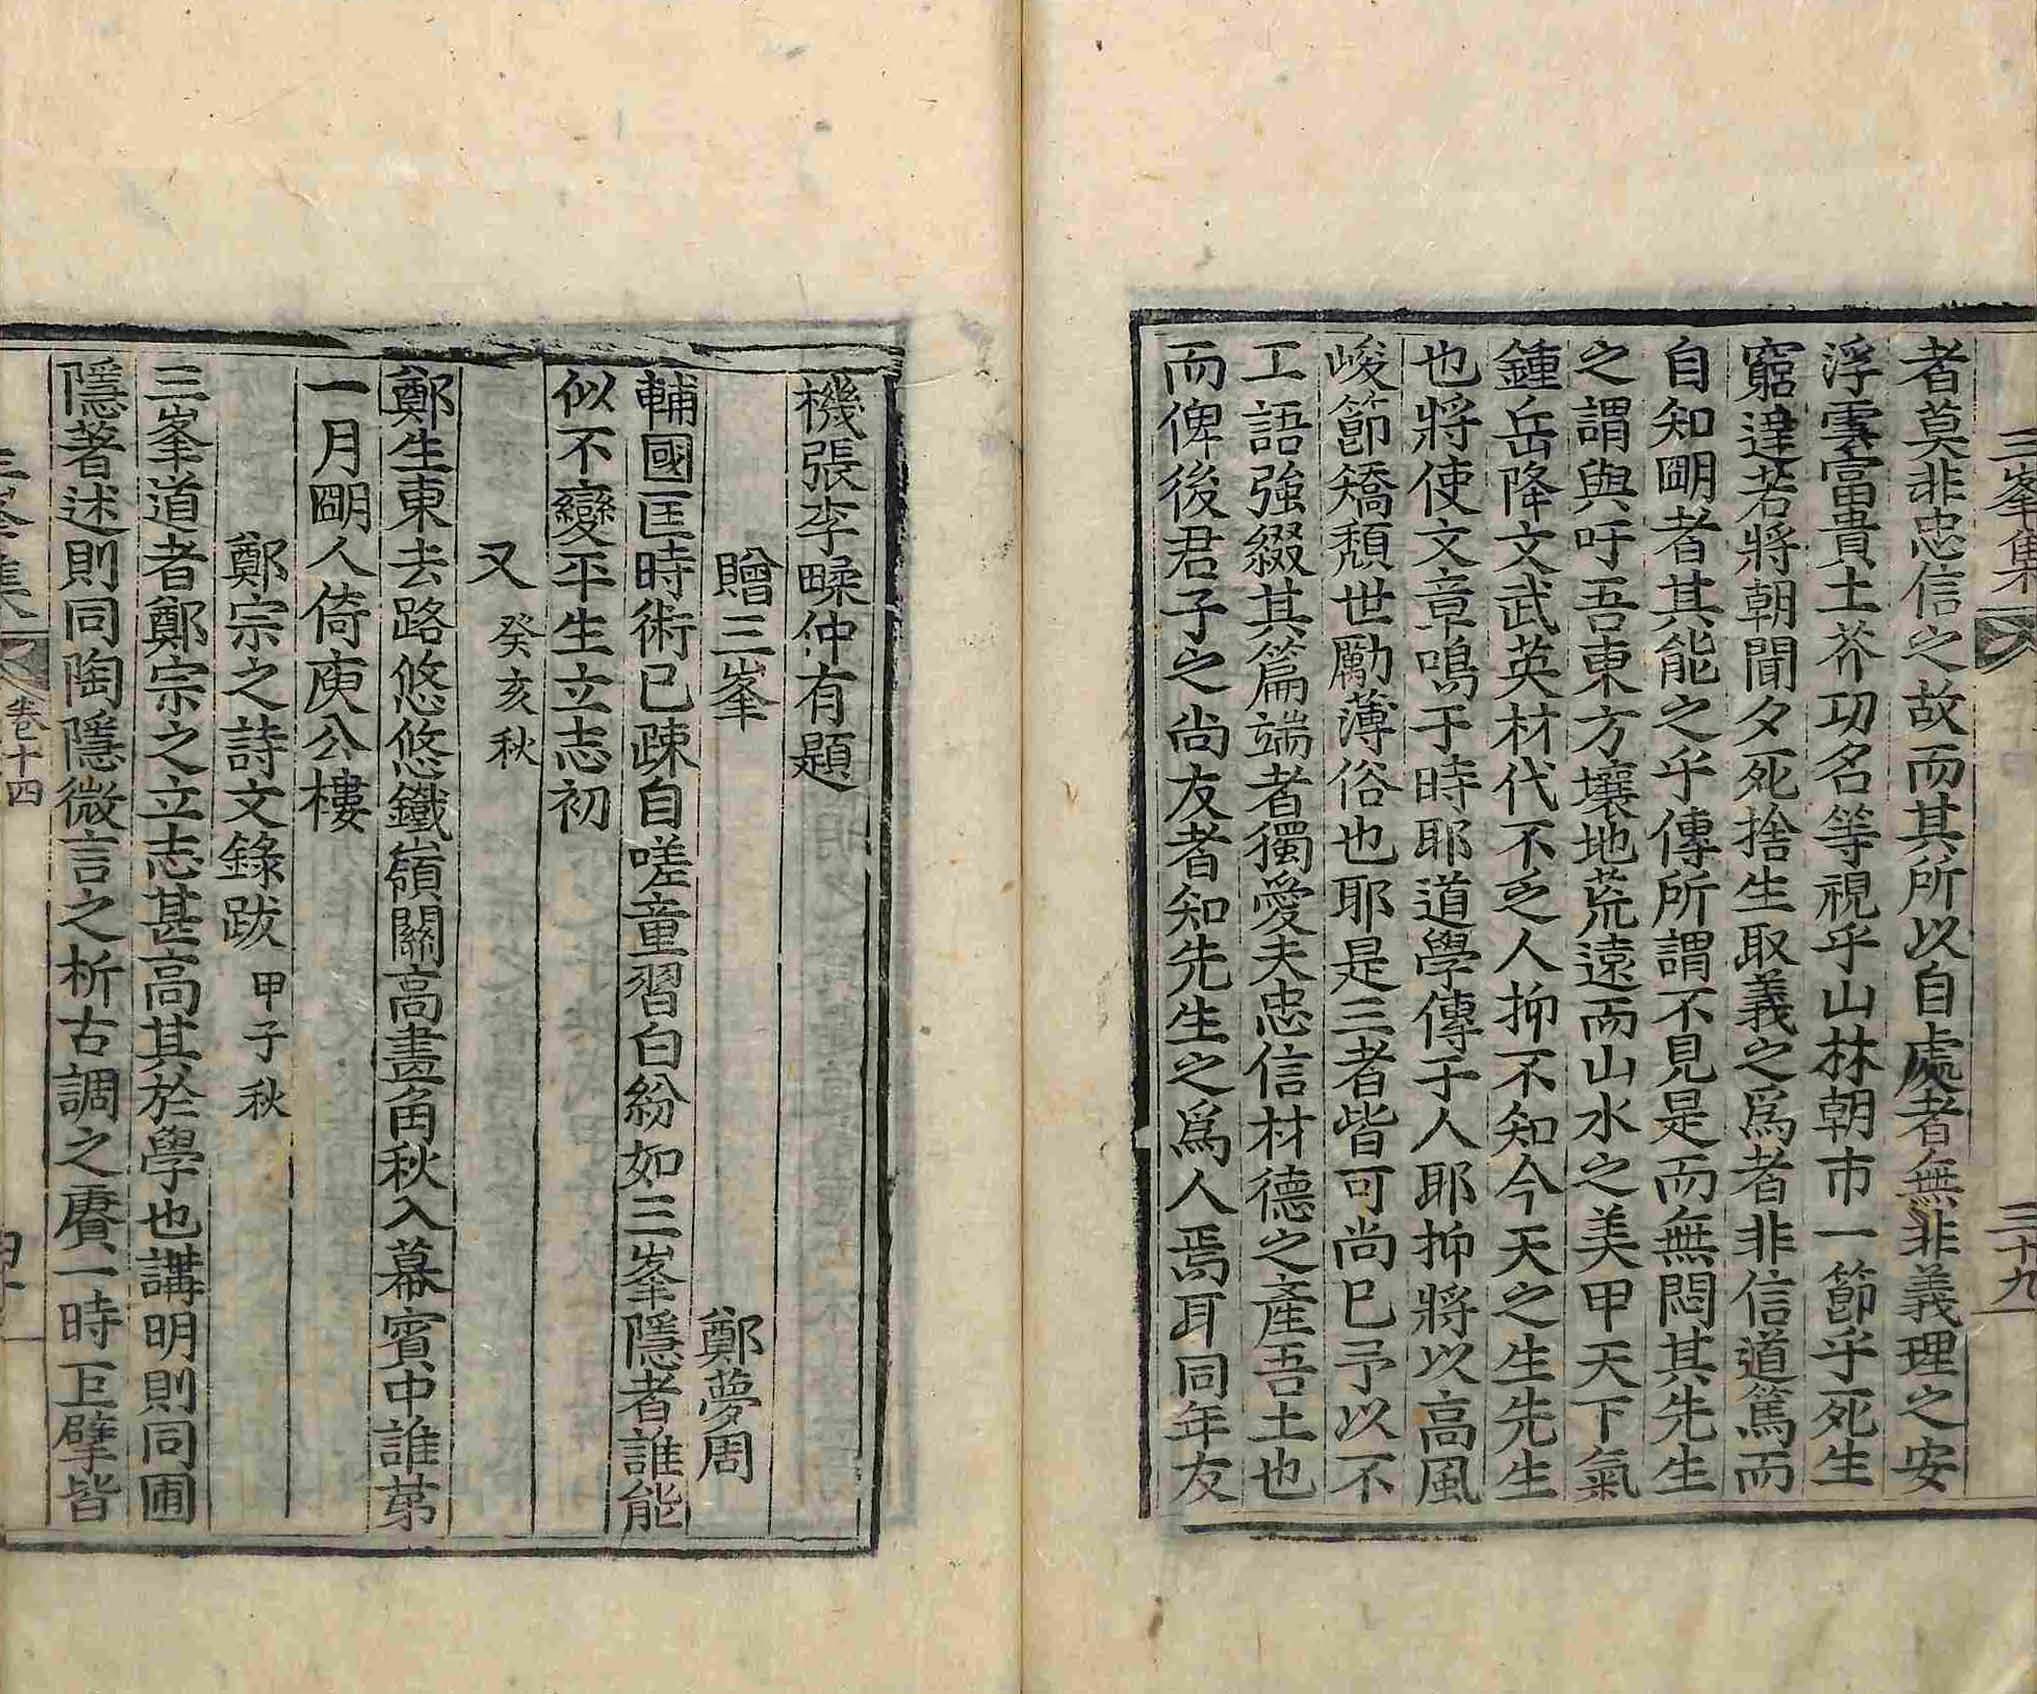 三峯集
三十九
者莫非忠信之故而其所以自處者無非義理之安
浮雲富貴土芥功名等視乎山林朝市一節乎死生
窮達若將朝聞夕死捨生取義之爲者非信道篤而
自知明者其能之乎傳所謂不見是而無悶其先生
之謂與吁吾東方壤地荒遠而山水之美甲天下氣
鍾岳降文武英材代不乏人抑不知今天之生先生
也將使文章鳴于時耶道學傳于人耶抑將以高風
峻節矯頹世勵薄俗也耶是三者皆可尚已予以不
工語強綴其篇端者獨愛夫忠信材德之產吾土也
而俾後君子之尚友者知先生之爲人焉耳同年友
機張李㽥仲有題
贈三峯 鄭夢周
輔國匡時術已疎自嗟童習白紛如三峯隱者誰能
似不變平生立志初
又 癸亥秋
鄭生東去路悠悠鐵嶺關高畫角秋入幕賓中誰第
一月明人倚庾公樓
鄭宗之詩文錄跋 甲子秋
三峯道者鄭宗之立志甚高其於學也講明則同圃
隱著述則同陶隱微言之析古調之賡一時巨擘皆
三峯集
卷十四